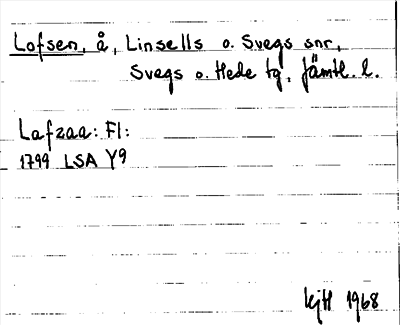 Lofsen, å, Linsells o. Svegs snr,
Svegs o. Hede tg, Jämtl. l.
Lafzaa: Fl:
1799 LSA Y9
kjH 1968